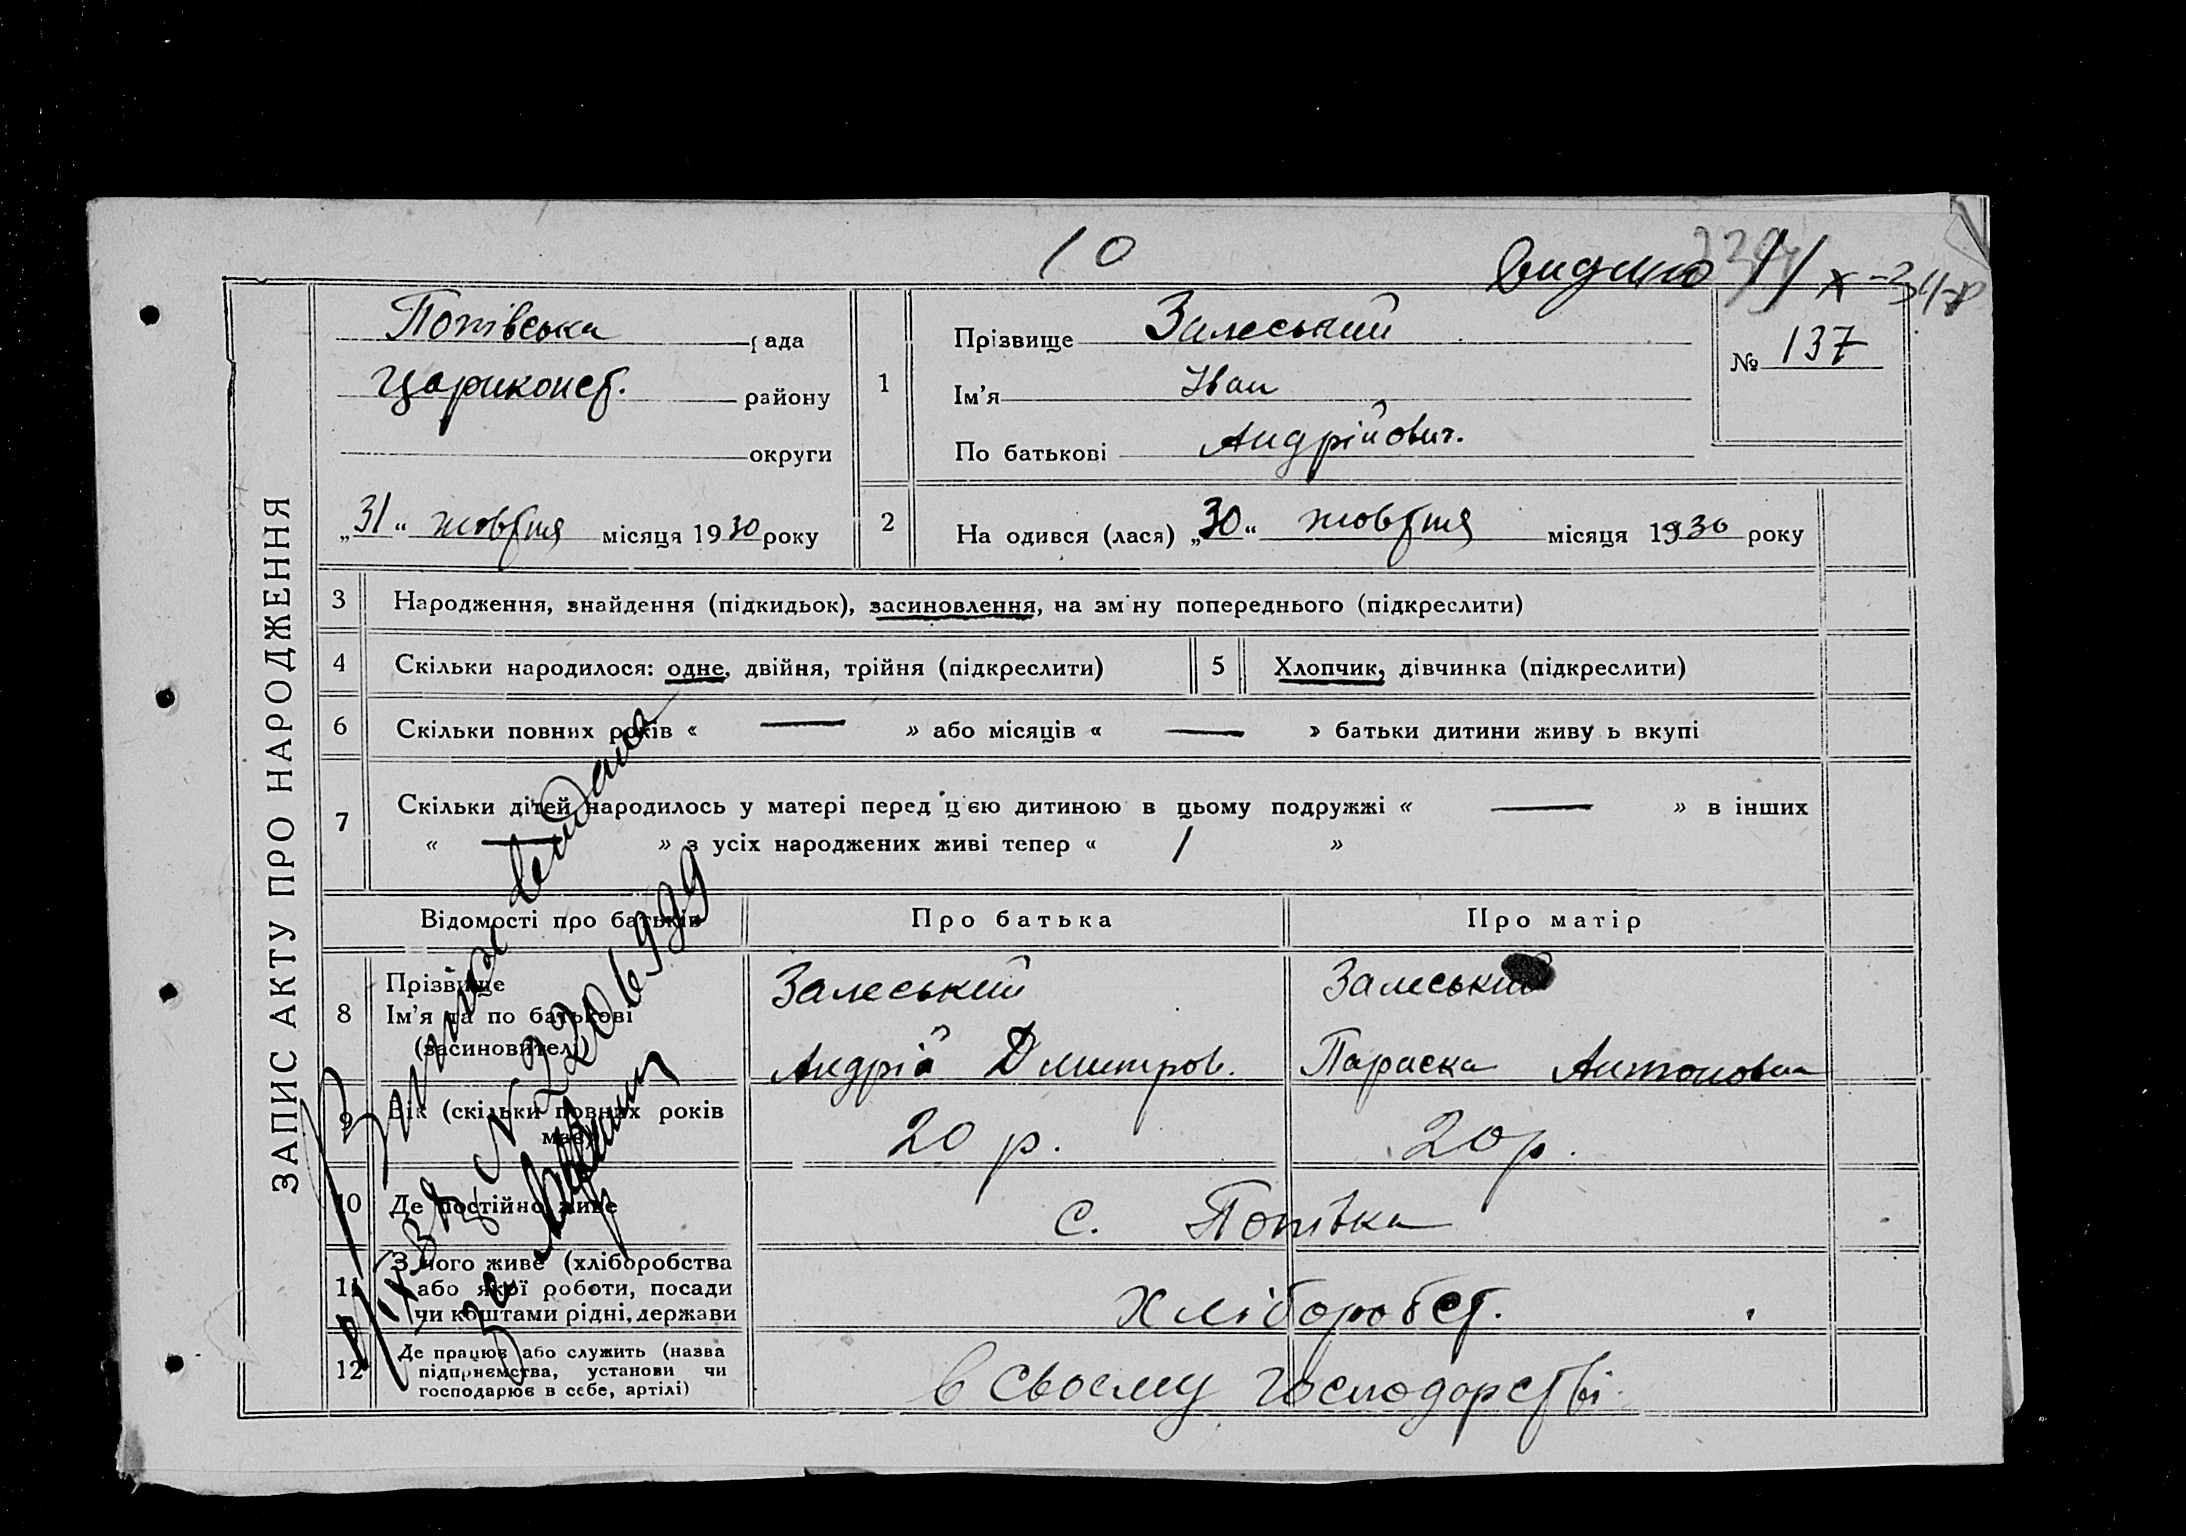 10
Видано 11/X-34р
ЗАПИС АКТУ ПРО НАРОДЖЕННЯ
Попівська рада
Цариконст. району
округи
„31“ жовтня місяця 1930 року
1
Прізвище Залеський
Ім'я Іван
По батькові Андрійович.
№ 137
2
На одився (лася) „30“ жовтня місяця 1930 року
3 Народження, знайдення (підкидьок), засиновлення, на зм ну попереднього (підкреслити)
4 Скільки народилося: одне, двійня, трійня (підкреслити)
5 Хлопчик, дівчинка (підкреслити)
6 Скільки повних років « — » або місяців « — » батьки дитини живу ь вкупі
7 Скільки дітей народилось у матері перед цією дитиною в цьому подружжі « — » в інших
« — » з усіх народжених живі тепер « 1 »
Відомості про батьків
Про батька
Про матір
8 Прізвище
Ім'я та по батькові
(засиновител.)
Залеський
Андрій Дмитров.
Залеський
Параска Антоновна
9 Вік (скільки повних років
має)
20 р.
20 р.
10 Де постійно живе
с. Попівка
11 З чого живе (хліборобства
або якої роботи, посади
чи коштами рідні, держави
хліборобст.
12 Де працює або служить (назва
підприємства, установи чи
господарює в себе, артілі)
в своєму господарстві.
видана